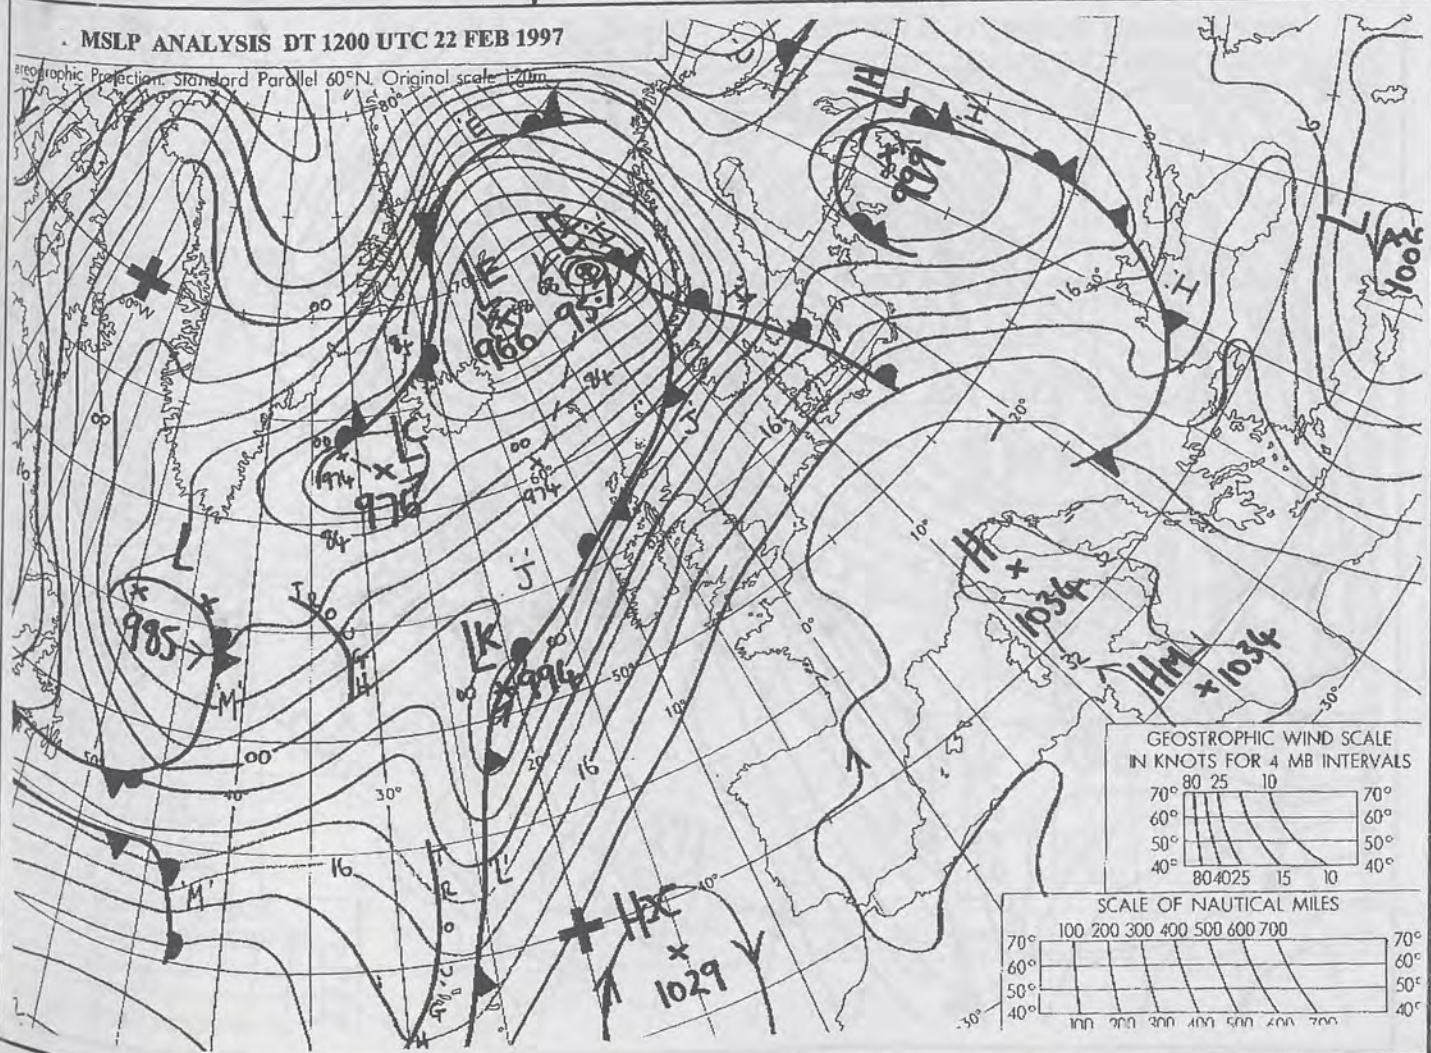 MSLP ANALYSIS DT 1200 UTC 22 FEB 1997
ereographic Projection. Standard Parallel 60°N. Original scale 1:20m
80°
'E'
LH
L
'H'
999
L
1002
LE
966
'H'
L
68
951
70
84
84
00
00
8
16
16
16
20°
40°
LC
00
974
976
00
60°
974
84
'J'
'J'
L
985
'M'
TROUGH
LK
00
00
994
50°
10°
0°
10°
H
1034
32
HM
1034
30°
50°
00
40°
30°
20°
16
16
'M'
'L'
TROUGH
HDC
1029
40°
30°
GEOSTROPHIC WIND SCALE
IN KNOTS FOR 4 MB INTERVALS
80 25 10
70° 70°
60° 60°
50° 50°
40° 40°
80 40 25 15 10
SCALE OF NAUTICAL MILES
100 200 300 400 500 600 700
70° 70°
60° 60°
50° 50°
40° 40°
100 200 300 400 500 600 700